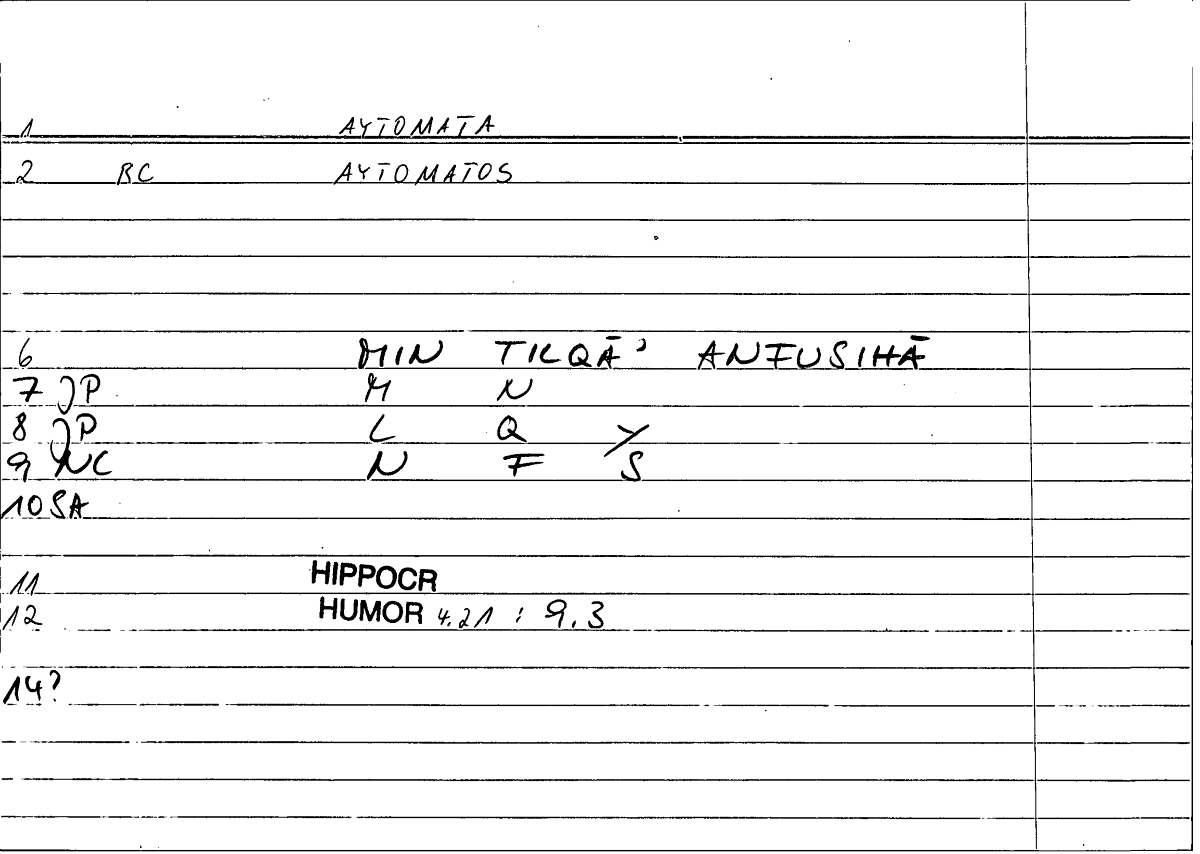 1 AYTOMATA
2 BC AYTOMATOS
6 MIN TILQĀ' ANFUSIHĀ
7 JP M N
8 JP L Q Y
9 NC N F S
10 SA
11 HIPPOCR
12 HUMOR 4.21 : 9.3
14?